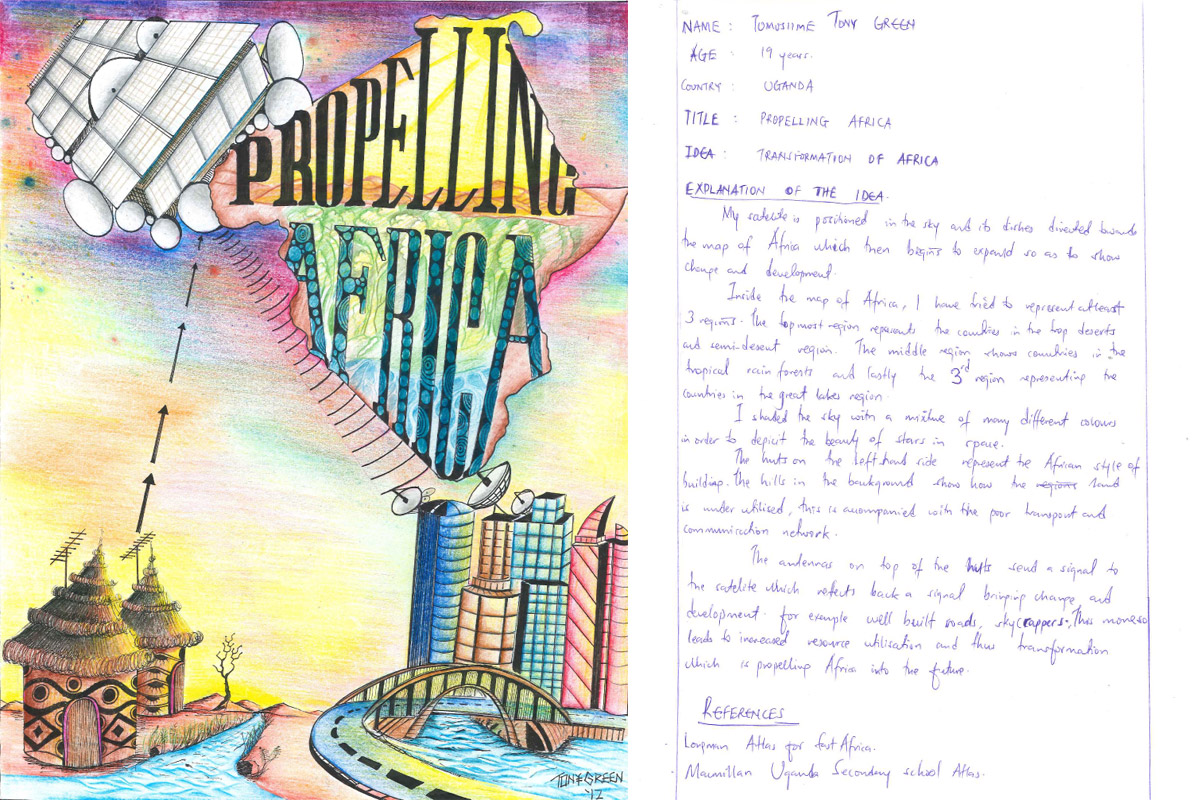 PROPELLING
AFRICA
TONY GREEN
'12
NAME : TUMUSIIME TONY GREEN
AGE : 19 years.
COUNTRY : UGANDA
TITLE : PROPELLING AFRICA
IDEA : TRANSFORMATION OF AFRICA
EXPLANATION OF THE IDEA.
My satelite is positioned in the sky and its dishes directed towards
the map of Africa which then begins to expand so as to show
change and development.
Inside the map of Africa, I have tried to represent atleast
3 regions. The top most region represents the countries in the top deserts
and semi-desert region. The middle region shows countries in the
tropical rain forests and lastly the 3rd region representing the
countries in the great lakes region.
I shaded the sky with a mixture of many different colours
in order to depict the beauty of stars in space.
The huts on the left hand side represent the African style of
building. The hills in the background show how the regions land
is under utilised, this is acompanied with the poor transport and
communication network.
The antennas on top of the huts send a signal to
the satelite which reflects back a signal bringing change and
development. for example well built roads, skycrappers, This moreso
leads to increased resource utilisation and thus transformation
which is propelling Africa into the future.
REFERENCES
Longman Atlas for East Africa.
Macmillan Uganda Secondary school Atlas.